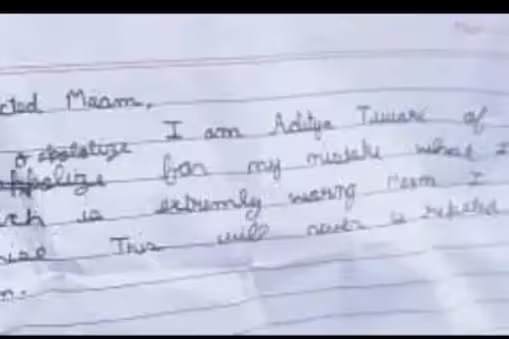 cted Maam,
I am Aditya Tiwari of
for my mistake what I
ch is extremly wrong Maam I
mise This will never is repeated